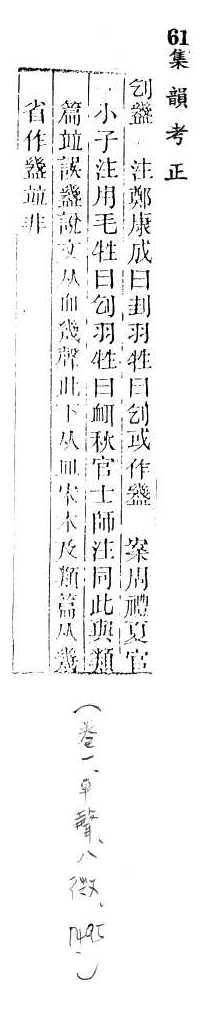 61
集韻考正
刉 注鄭康成曰刲羽牲曰刉或作 案周禮夏官
小子注用毛牲曰刉羽牲曰衈秋官士師注同此與類
篇竝誤 說文从血幾聲此下从皿宋本及類篇从幾
省作 竝非
（卷一、平聲、八微、）